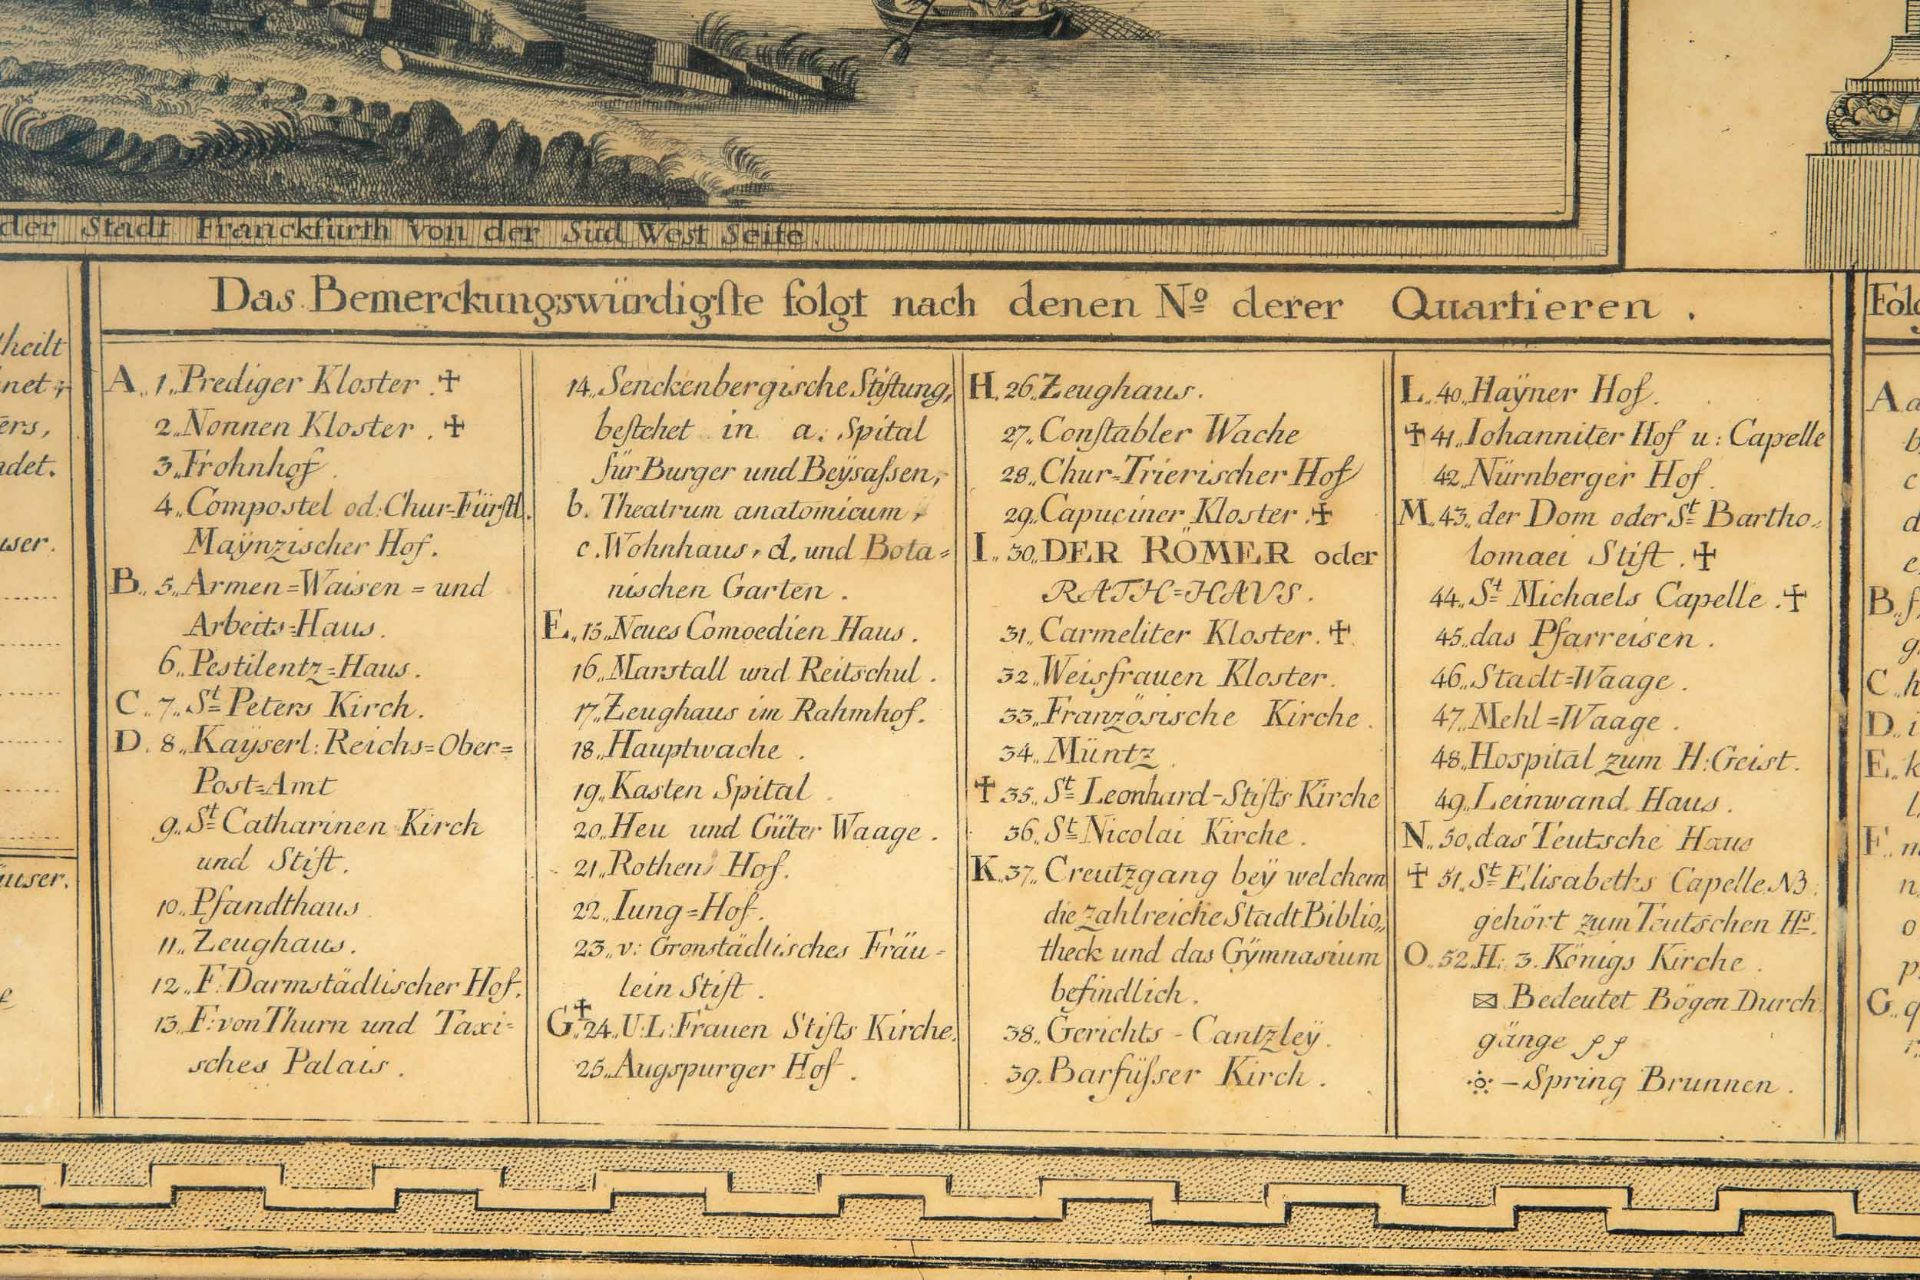 der Stadt Franckfurth Von der Süd West Seite.
Das Bemerckungswürdigste folgt nach denen No derer Quartieren.
theilt
ers,
user.
A,, 1,, Prediger Kloster. ✢
2,, Nonnen Kloster. ✢
3,, Frohnhof.
4,, Compostel od: Chur=Fürstl.
Maÿnzischer Hof.
B,, 5,, Armen=Waisen=und
Arbeits=Haus.
6,, Pestilentz=Haus.
C,, 7,, St Peters Kirch.
D. 8,, Kaÿserl: Reichs=Ober=
Post=Amt
9,, St Catharinen Kirch
und Stift.
10,, Pfandthaus.
11,, Zeughaus.
12,, F: Darmstädtischer Hof.
13,, F: von Thurn und Taxi=
sches Palais.
14,, Senckenbergische Stiftung,
bestehet in a. Spital
für Burger und Beÿsassen,
b. Theatrum anatomicum,
c. Wohnhaus, d, und Bota=
nischen Garten.
E,, 15,, Neues Comoedien Haus.
16,, Marstall und Reitschul.
17,, Zeughaus im Rahmhof.
18,, Hauptwache.
19,, Kasten Spital.
20,, Heu und Güter Waage.
21,, Rothen Hof.
22,, Iung=Hof.
23,, v: Cronstädtisches Fräu=
lein Stift.
G,, ✢ 24,, U: L: Frauen Stifts Kirche.
25,, Augspurger Hof.
H. 26,, Zeughaus.
27,, Constabler Wache
28,, Chur=Trierischer Hof
29,, Capuciner Kloster. ✢
I,, 30,, DER RÖMER oder
RATH=HAVS.
31,, Carmeliter Kloster. ✢
32,, Weisfrauen Kloster.
33,, Französische Kirche.
34,, Müntz.
✢ 35,, St Leonhard=Stifts Kirche
36,, St Nicolai Kirche.
K,, 37,, Creutzgang beÿ welchem
die zahlreiche Stadt Biblio,,
theck und das Gÿmnasium
befindlich.
38,, Gerichts=Cantzleÿ.
39. Barfüsser Kirch.
L,, 40,, Haÿner Hof.
✢ 41,, Iohanniter Hof u: Capelle
42,, Nürnberger Hof.
M,, 43,, der Dom oder St Bartho,,
lomaei Stift. ✢
44,, St Michaels Capelle. ✢
45,, das Pfarreisen.
46,, Stadt=Waage.
47,, Mehl=Waage.
48,, Hospital zum H: Geist.
49,, Leinwand Haus.
N,, 50,, das Teutsche Haus
✢ 51,, St Elisabeths Capelle NB.
gehört zum Teutschen Hs.
O,, 52,, H: 3. Königs Kirche.
Bedeutet Bögen Durch
gänge
– Spring Brunnen.
A
B,,
C,,
D,,
E,,
F,,
G,,